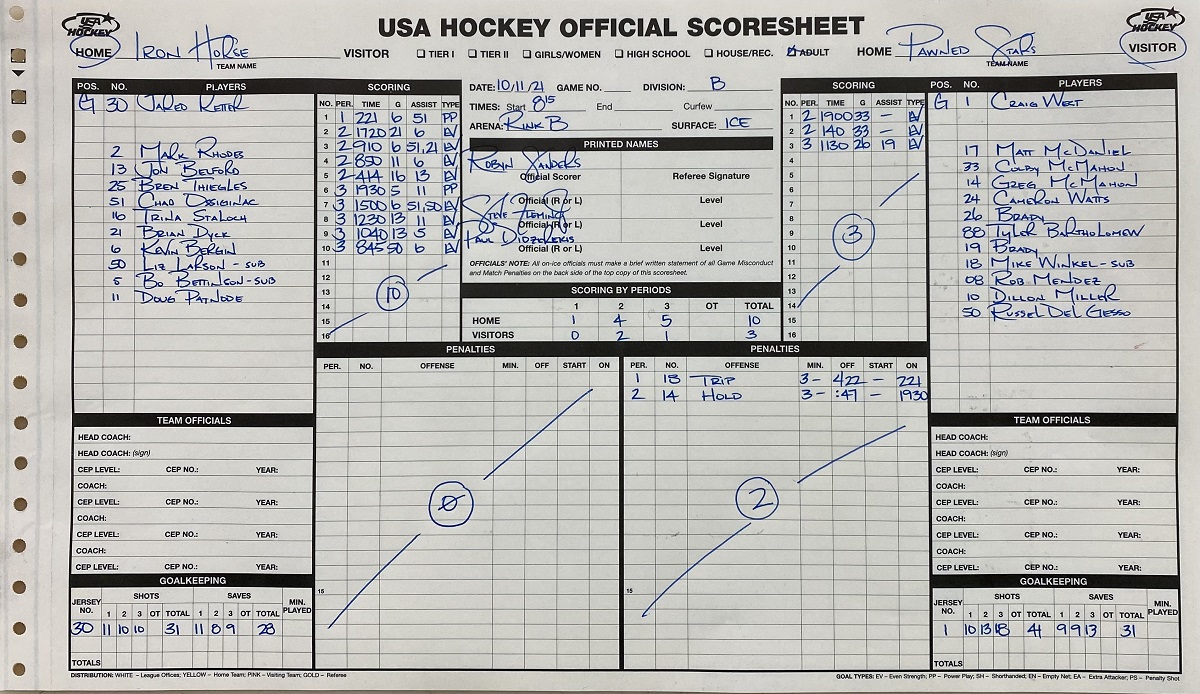 USA HOCKEY OFFICIAL SCORESHEET
USA HOCKEY
USA HOCKEY
HOME IRON HORSE TEAM NAME
VISITOR TIER I TIER II GIRLS/WOMEN HIGH SCHOOL HOUSE/REC. ADULT HOME
PAWNED STARS TEAM NAME VISITOR
POS. NO. PLAYERS
G 30 JARED REITER
2 MARK RHODES
13 JON BELFORD
25 BREN THIEGLES
51 CHAD OSSIGINAC
16 TRINA STALOCH
21 BRIAN DYCK
6 KEVIN BERGIN
50 LIZ LARSON - SUB
5 BO BETTINSON - SUB
11 DOUG PATNODE
SCORING
NO. PER. TIME G ASSIST TYPE
1 1 221 6 51 PP
2 2 1720 21 6 EV
3 2 910 6 51,21 EV
4 2 850 11 6 EV
5 2 414 16 13 EV
6 3 1930 5 11 PP
7 3 1500 6 51,50 EV
8 3 1230 13 11 EV
9 3 1040 13 5 EV
10 3 845 50 6 EV
11
12
13
14
15
16
10
DATE: 10/11/21 GAME NO. DIVISION: B
TIMES: Start 8 15 End Curfew
ARENA: RINK B SURFACE: ICE
PRINTED NAMES
ROBYN SANDERS
Official Scorer Referee Signature
Official (R or L) Level
STEVE FLEMING
Official (R or L) Level
PAUL DIDZEREKIS
Official (R or L) Level
OFFICIALS' NOTE: All on-ice officials must make a brief written statement of all Game Misconduct
and Match Penalties on the back side of the top copy of this scoresheet.
SCORING BY PERIODS
1 2 3 OT TOTAL
HOME 1 4 5 10
VISITORS 0 2 1 3
SCORING
NO. PER. TIME G ASSIST TYPE
1 2 1900 33 - EV
2 2 140 33 - EV
3 3 1130 26 19 EV
4
5
6
7
8
9
10
11
12
13
14
15
16
3
POS. NO. PLAYERS
G 1 CRAIG WEST
17 MATT MCDANIEL
33 COLBY MCMAHON
14 GREG MCMAHON
24 CAMERON WATTS
26 BRADY
88 TYLER BARTHOLOMEW
19 BRADY
18 MIKE WINKEL - SUB
08 ROB MENDEZ
10 DILLON MILLER
50 RUSSEL DEL GESSO
PENALTIES
PER. NO. OFFENSE MIN. OFF START ON
0
15
PENALTIES
PER. NO. OFFENSE MIN. OFF START ON
1 18 TRIP 3 - 422 - 221
2 14 HOLD 3 - :47 - 1930
2
15
TEAM OFFICIALS
HEAD COACH:
HEAD COACH: (sign)
CEP LEVEL: CEP NO.: YEAR:
COACH:
CEP LEVEL: CEP NO.: YEAR:
COACH:
CEP LEVEL: CEP NO.: YEAR:
COACH:
CEP LEVEL: CEP NO.: YEAR:
GOALKEEPING
JERSEY NO. SHOTS SAVES MIN. PLAYED
1 2 3 OT TOTAL 1 2 3 OT TOTAL
30 11 10 10 31 11 8 9 28
TOTALS
TEAM OFFICIALS
HEAD COACH:
HEAD COACH: (sign)
CEP LEVEL: CEP NO.: YEAR:
COACH:
CEP LEVEL: CEP NO.: YEAR:
COACH:
CEP LEVEL: CEP NO.: YEAR:
COACH:
CEP LEVEL: CEP NO.: YEAR:
GOALKEEPING
JERSEY NO. SHOTS SAVES MIN. PLAYED
1 2 3 OT TOTAL 1 2 3 OT TOTAL
1 10 13 18 41 9 9 13 31
TOTALS
DISTRIBUTION: WHITE – League Offices; YELLOW – Home Team; PINK – Visiting Team; GOLD – Referee
GOAL TYPES: EV – Even Strength; PP – Power Play; SH – Shorthanded; EN – Empty Net; EA – Extra Attacker; PS – Penalty Shot